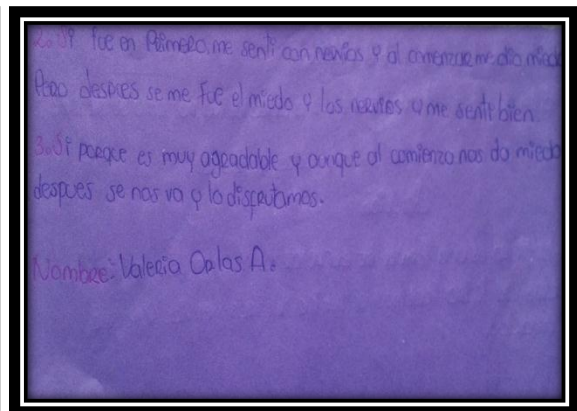 2. Si fue en Primero, me senti con nervios y al comenzar me dio miedo
Pero despues se me fue el miedo y los nervios y me senti bien
3. Si porque es muy agradable y aunque al comienzo nos da miedo
despues se nos va y lo disfrutamos.
Nombre: Valeria Oalas A.